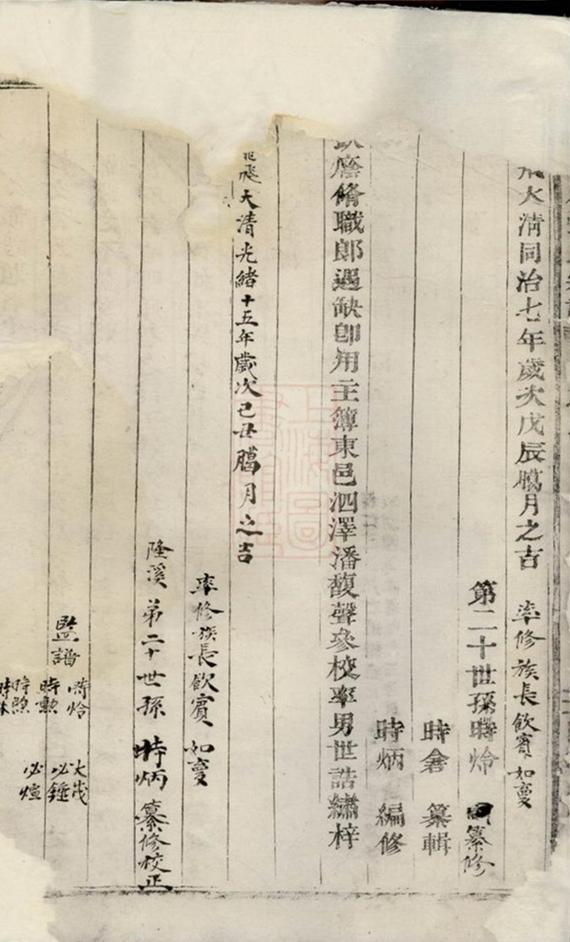 飛大清同治七年歲次戊辰臈月之吉 率修族長飲賓 如夔
第二十世孫時烚 纂修
時鼒 纂輯
時炳 編修
廕脩職郎遇缺卽用主簿東邑泗澤潘馥聲參校率男世誥繡梓
飛大清光緒十五年歲次己丑臈月之吉
率修族長飲賓 如夔
隆溪 第二十世孫 時炳 纂修校正
監譜
時烚 大茂
時勲 必鍾
時煦 必煊